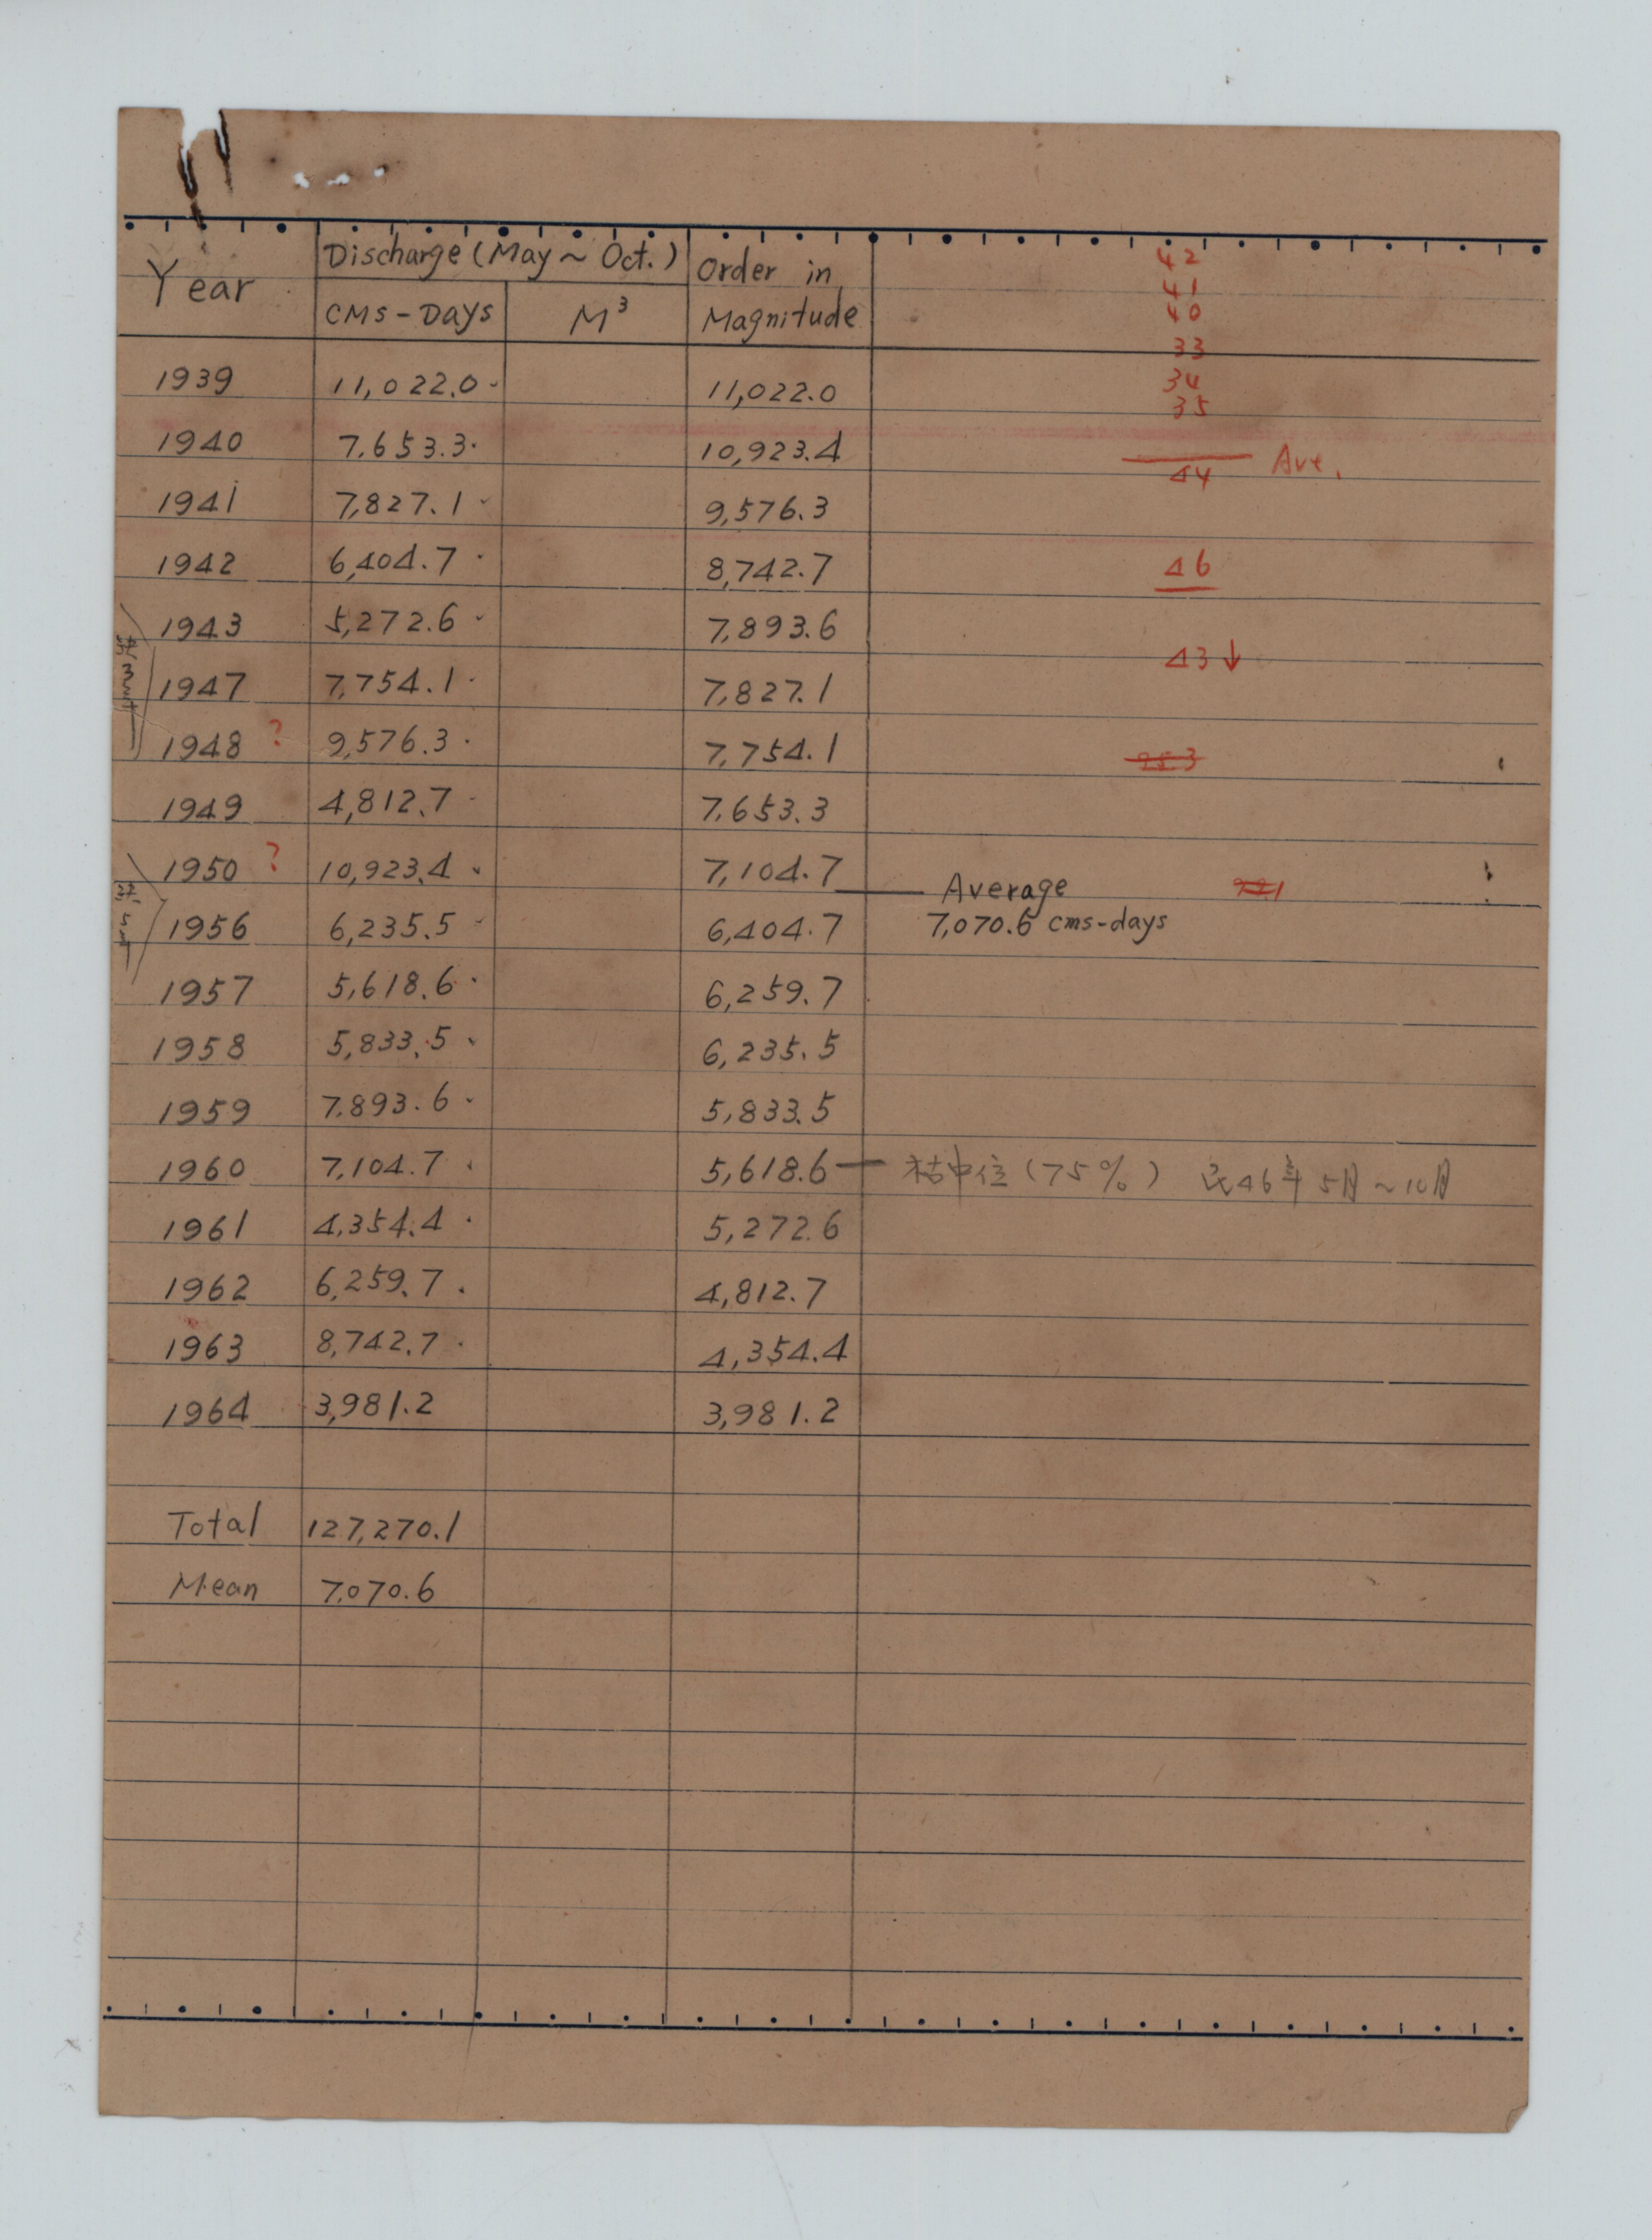 Year Discharge (May ~ Oct.) Order in Magnitude
CMS-Days M³
42
41
40
33
34
35
1939 11,022.0 11,022.0
1940 7,653.3 10,923.4
Ave.
44
1941 7,827.1 9,576.3
1942 6,404.7 8,742.7 46
1943 5,272.6 7,893.6
43 ↓
1947 7,754.1 7,827.1
1948 ? 9,576.3 7,754.1
1949 4,812.7 7,653.3
1950 ? 10,923.4 7,104.7 — Average
1956 6,235.5 6,404.7 7,070.6 cms-days
1957 5,618.6 6,259.7
1958 5,833.5 6,235.5
1959 7,893.6 5,833.5
1960 7,104.7 5,618.6 — 枯中位(75%) 民46年5月~10月
1961 4,354.4 5,272.6
1962 6,259.7 4,812.7
1963 8,742.7 4,354.4
1964 3,981.2 3,981.2
Total 127,270.1
Mean 7,070.6